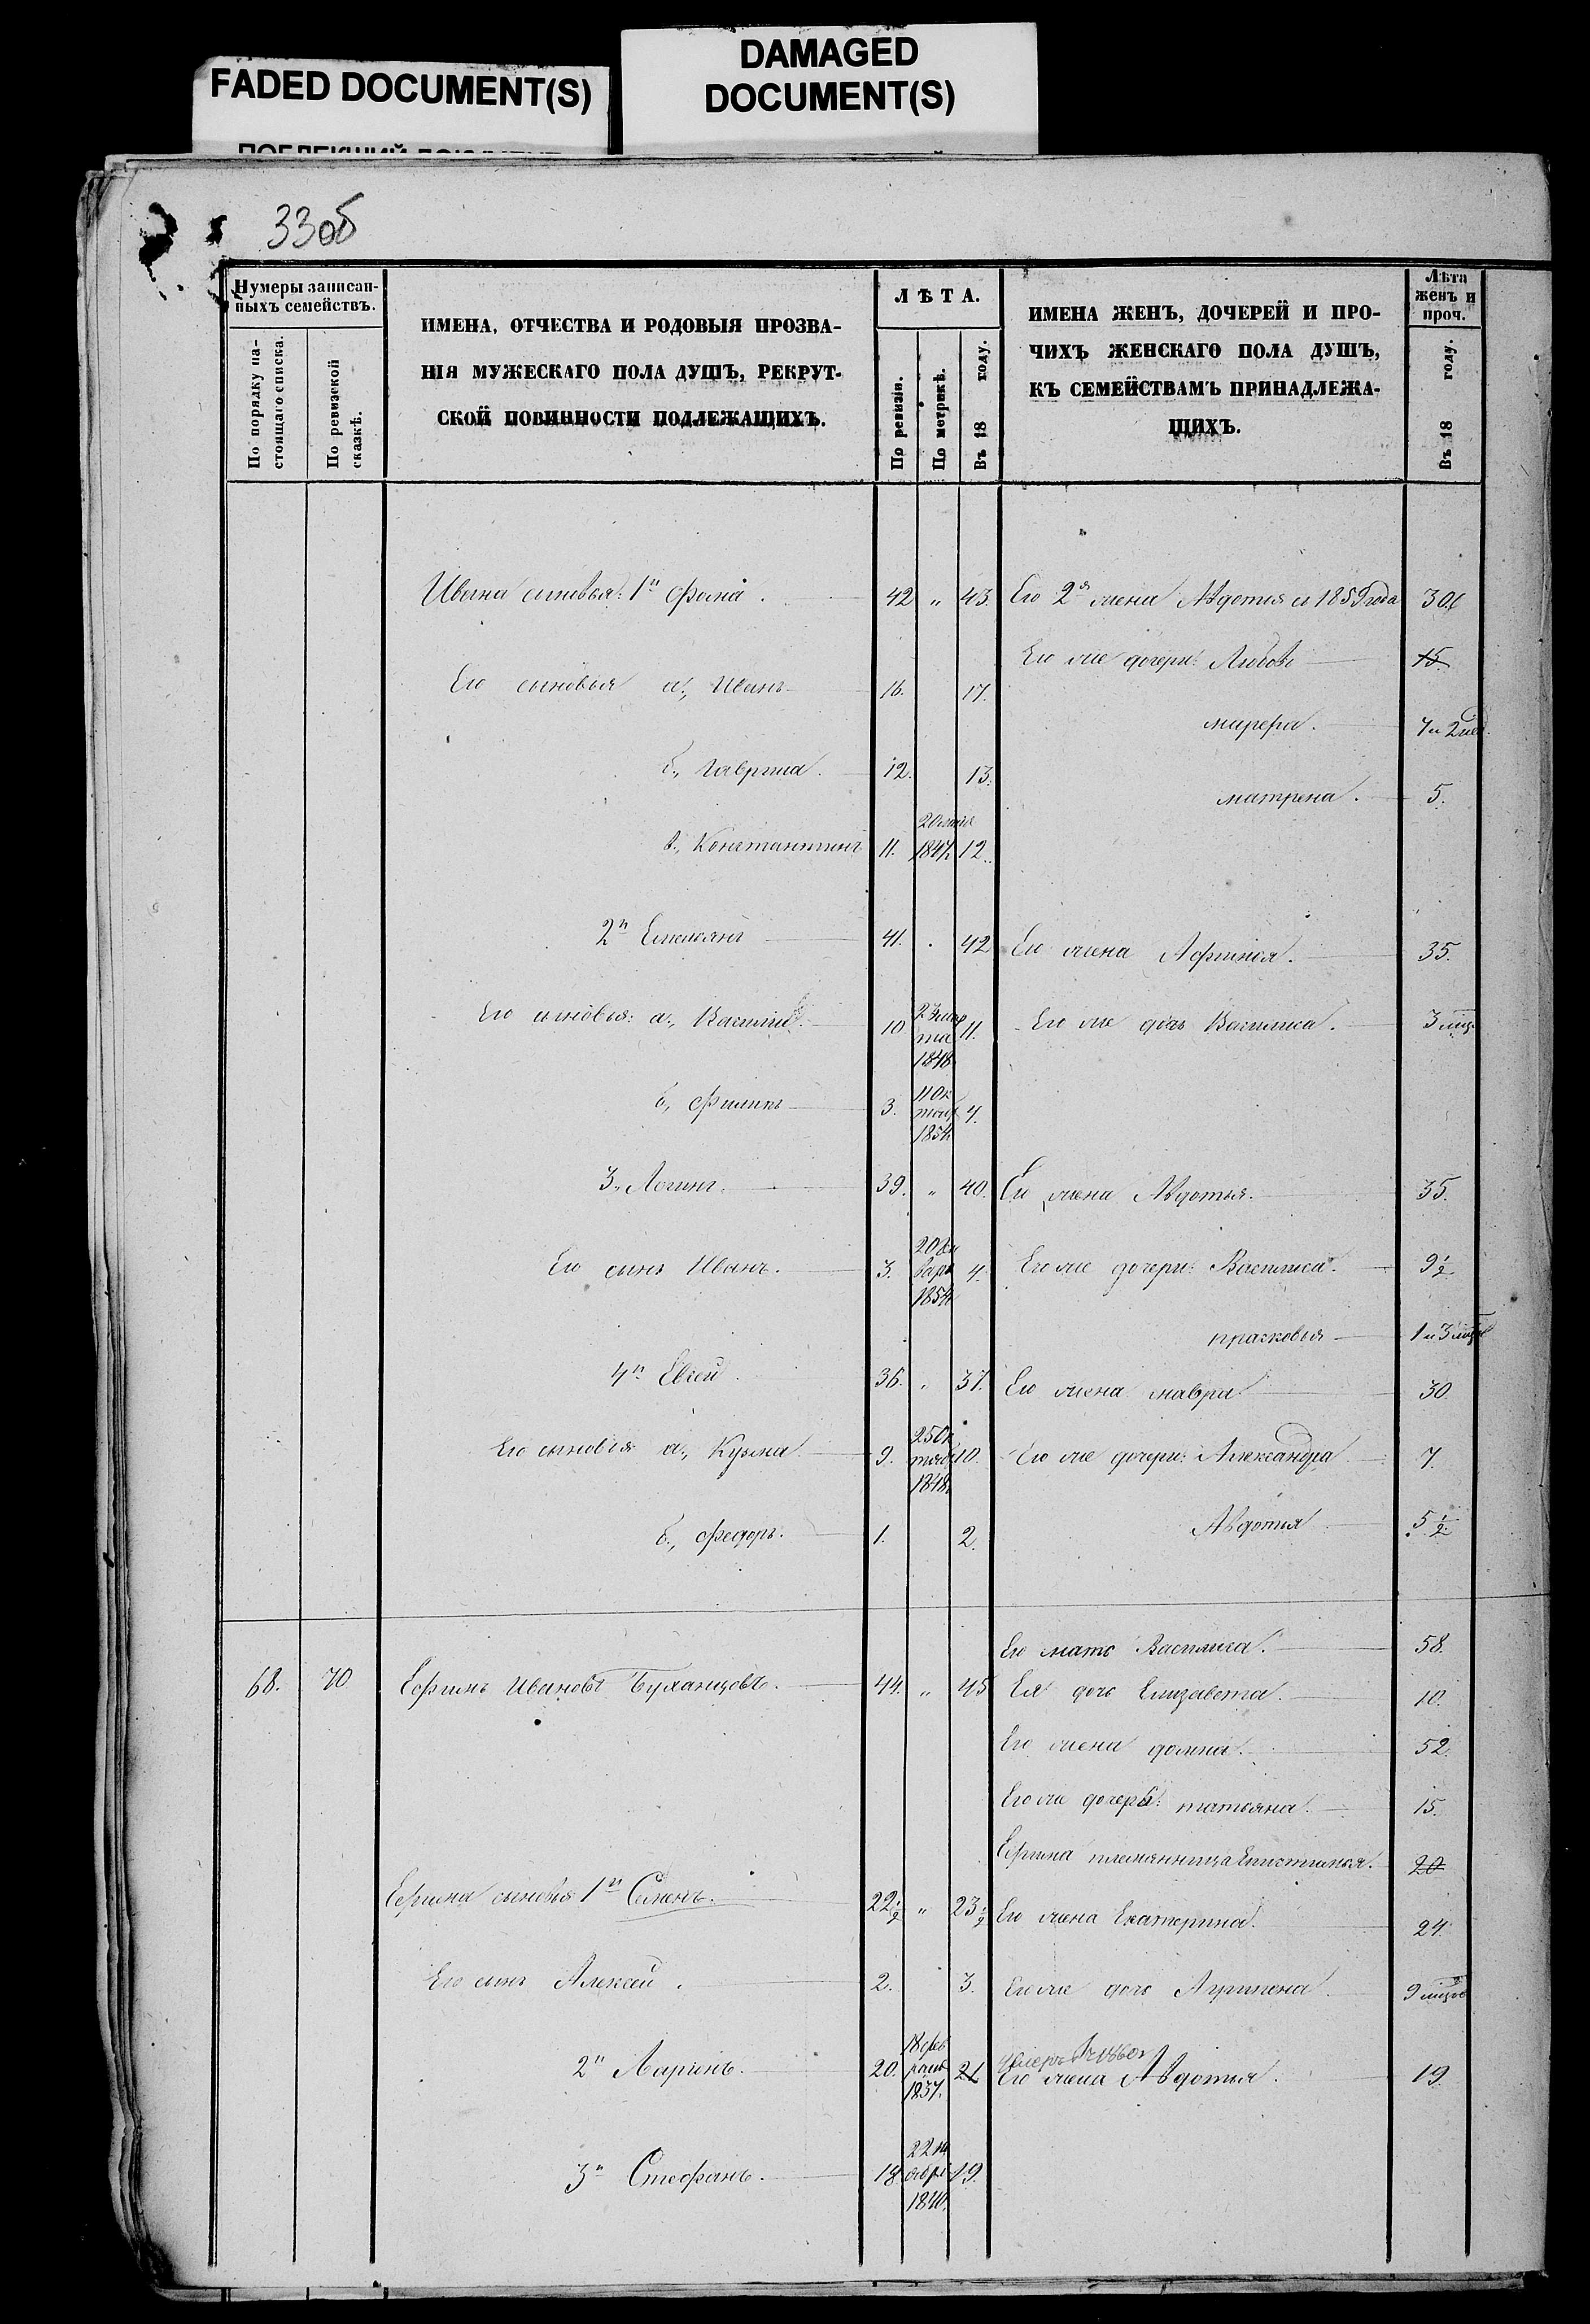 FADED DOCUMENT(S)
DAMAGED
DOCUMENT(S)
33об
Нумеры записан-
ныхъ семействъ.
По порядку на-
стоящаго списка.
По ревизской
сказкѣ.
ИМЕНА, ОТЧЕСТВА И РОДОВЫЯ ПРОЗВА-
НІЯ МУЖЕСКАГО ПОЛА ДУШЪ, РЕКРУТ-
СКОЙ ПОВИННОСТИ ПОДЛЕЖАЩИХЪ.
ЛѢТА.
По ревизіи.
По метрикѣ.
Въ 18 году.
ИМЕНА ЖЕНЪ, ДОЧЕРЕЙ И ПРО-
ЧИХЪ ЖЕНСКАГО ПОЛА ДУШЪ,
КЪ СЕМЕЙСТВАМЪ ПРИНАДЛЕЖА-
ЩИХЪ.
Лѣта
женъ и
проч.
Въ 18 году.
Ивана сыновья: 1й Фома. 42 „ 43. Его 2я жена Авдотья съ 1859 года 30
Его же дочери: Любовь 15.
Его сыновья а., Иванъ 16. 17.
7 и 2 мѣс.
б., Гаврила. 12. 13.
матрена. 5.
в., Константинъ 11. 20 мая 1847 12.
2й Емельянъ 41. 42 Его жена Афимья. 35.
Его сыновья: а., Василій. 10 23 мар
та
1848 11. Его же дочь Василиса. 3 мѣс.
б., Филипъ 3. 11 Ок
тяб
1854 4.
3., Логинъ. 39. „ 40. Его жена Авдотья. 35.
Его сынъ Иванъ. 3. 20 Ян
варя
1854 4. Его же дочери: Василиса. 9 1/2
прасковья 1 и 3 мѣс
4й Евсей 36. 37. Его жена мавра 30.
Его сыновья а., Кузма 9. 25 Ок
тяб
1848 10. Его же дочери: Александра 7.
б., Федоръ. 1. 2. Авдотья 5 1/2.
Его мать Василиса. 58.
68. 70 Ефимъ Ивановъ Буханцовъ. 44. „ 45 Ея дочь Елизавета. 10.
Его жена домна. 52.
Его же дочерь: татьяна. 15.
Ефима племянница Епистимья. 20
Ефима сыновья 1й Семенъ. 22 1/2 „ 23 1/2 Его жена Екатерина. 24.
Его сынъ Алексей. 2. 3. Его же дочь Агрипена 9 мѣсяц
2й Ларіонъ. 20. 18 фев
раля
1837. 21 Его жена Авдотья. 19.
3й Стефанъ. 18 22
1840. 19.